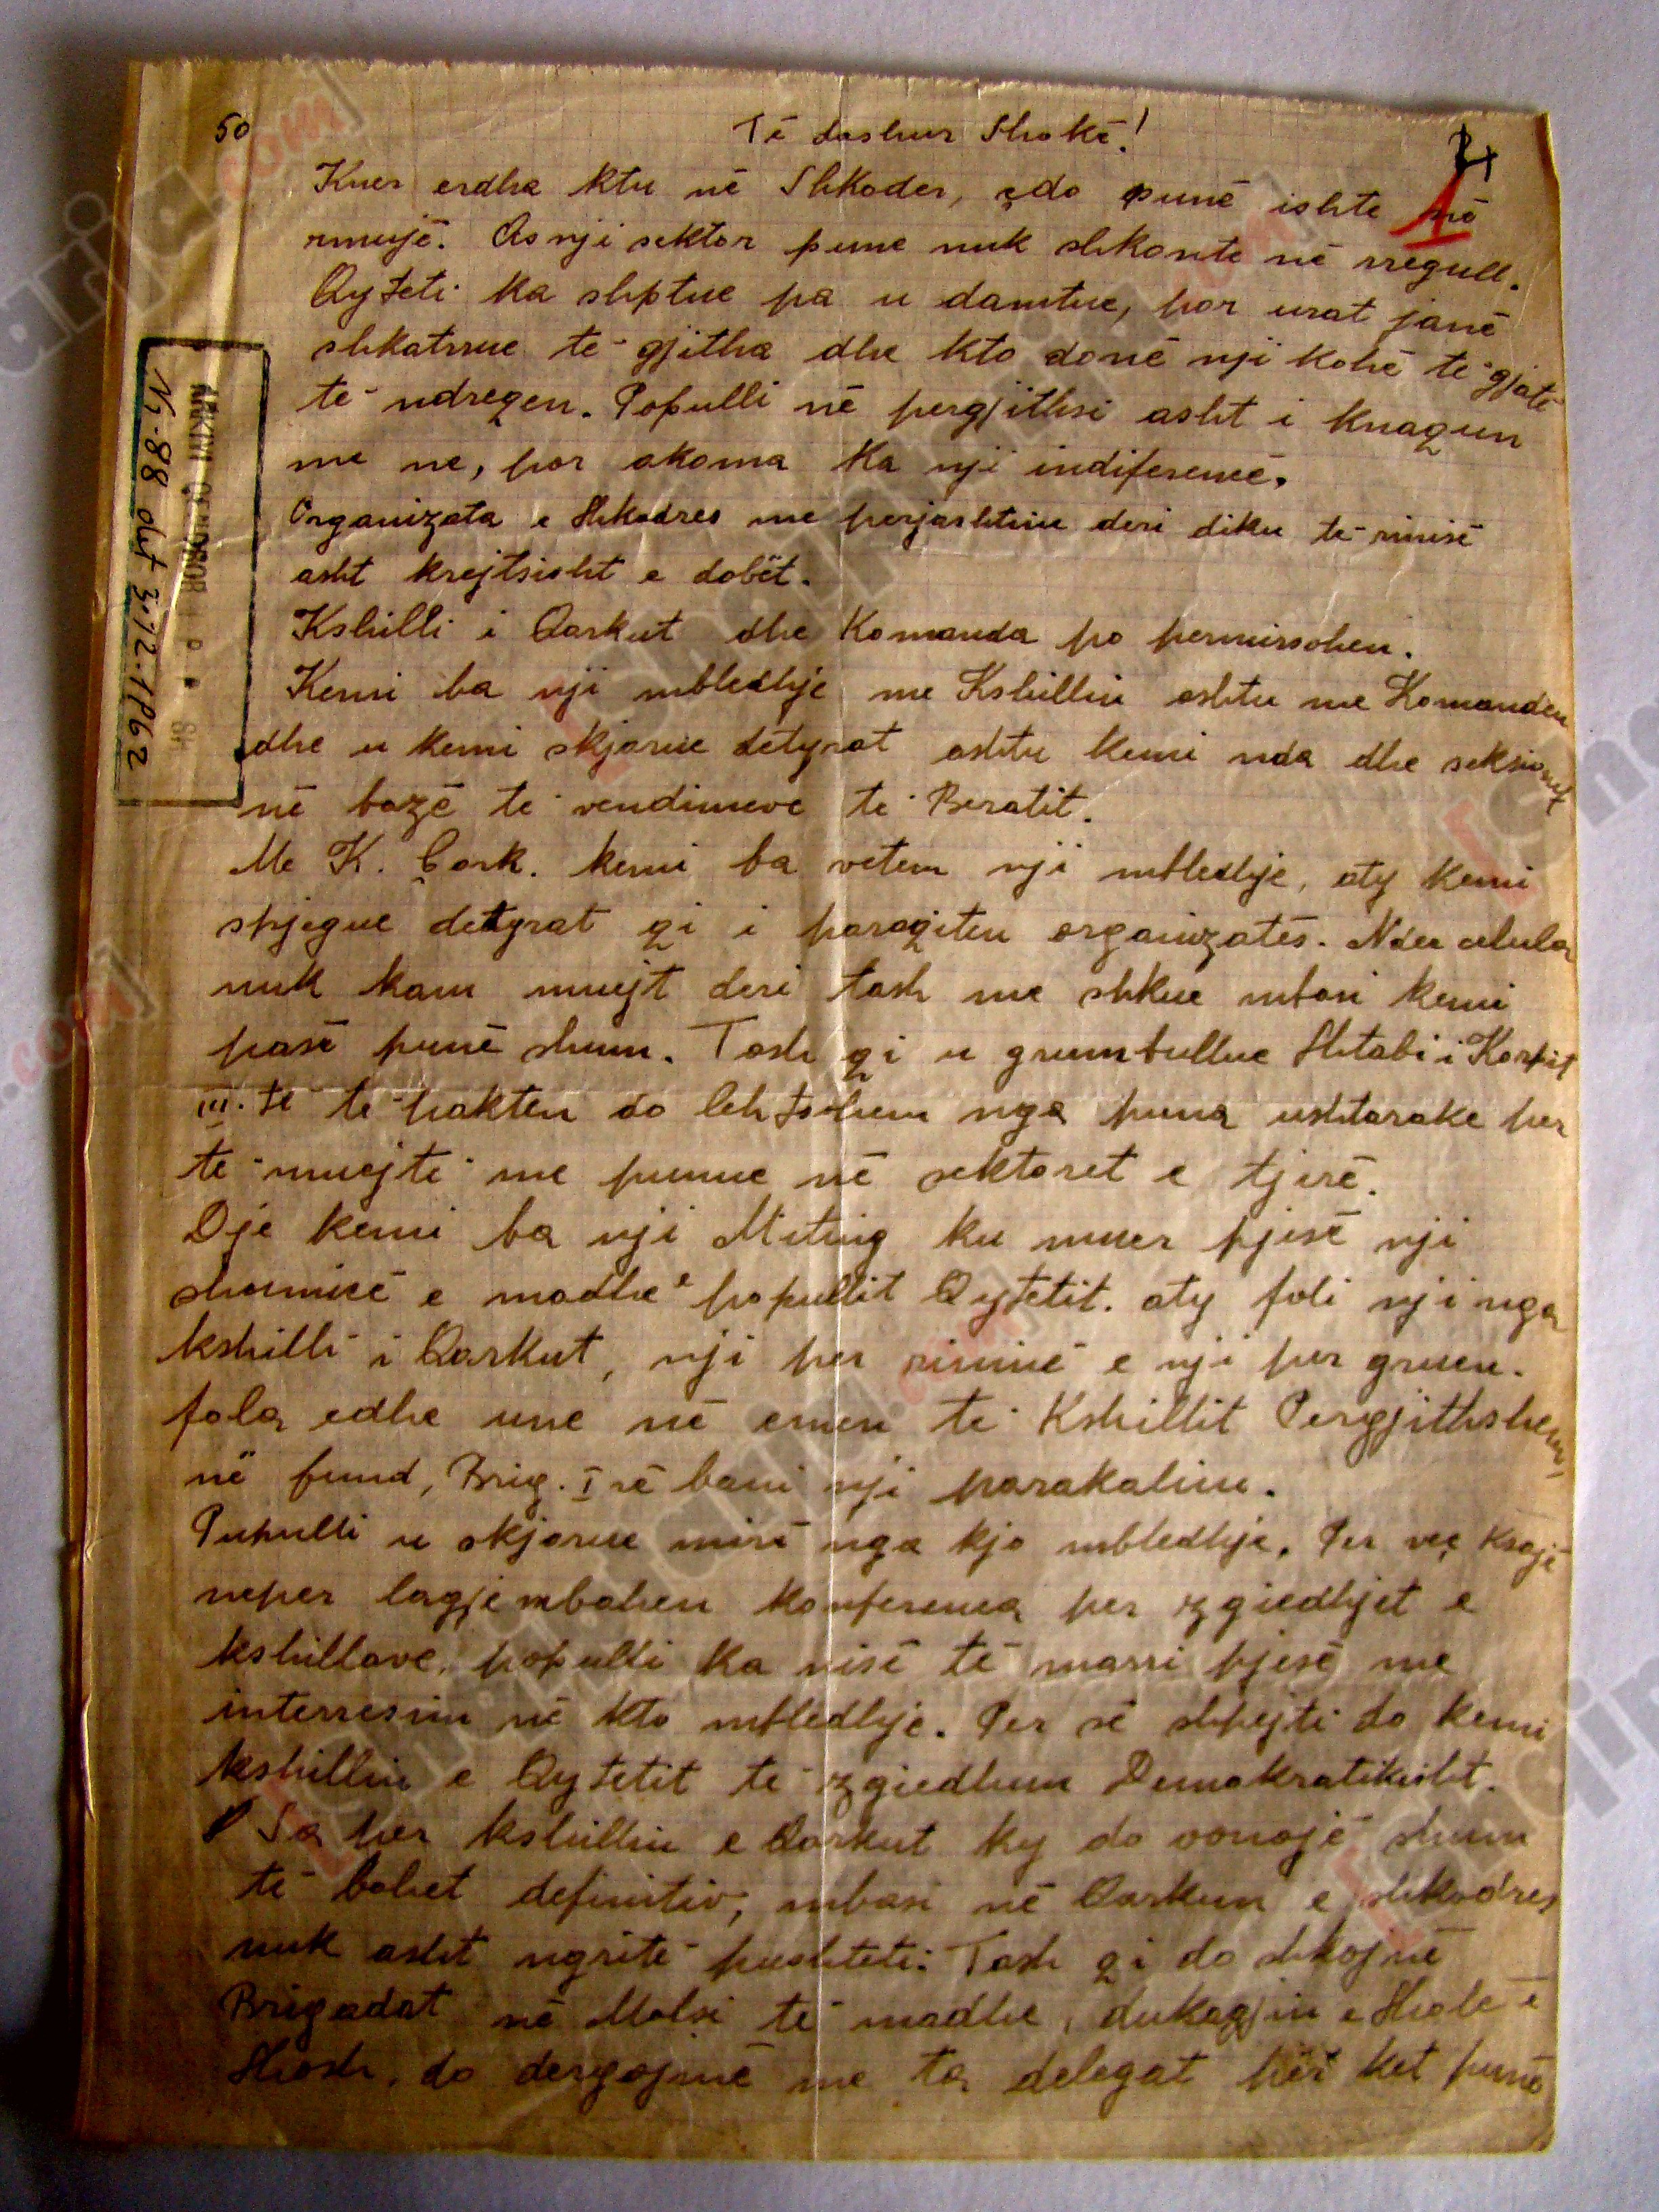 50
Të dashur Shokë!
Kuer erdha ktu në Shkoder, çdo punë ishte në
rrnujë. Asnji sektor pune nuk shkonte në rregull.
Qyteti ka shptue pa u damtue, por urat janë
shkatrrue të gjitha dhe kto donë nji kohë të gjatë
të ndreqen. Populli në pergjithsi asht i knaqun
me ne, por akoma ka nji indiferencë.
Organizata e Shkodres me perjashtim deri diku të rinisë
asht krejtsisht e dobët.
Kshilli i Qarkut dhe Komanda po permirsohen.
Kemi ba nji mbledhje me Kshillin ashtu me Komanden
dhe u kemi skjarue detyrat ashtu kemi nda dhe seksionet
në bazë te vendimeve te Beratit.
Me K. Qark. kemi ba vetem nji mbledhje, aty kemi
spjegue detyrat qi i paraqiten organizatës. Nder celula
nuk kam muejt deri tash me shkue mbasi kemi
pasë punë shum. Tash qi u grumbullue Shtabi i Korpit
III. të te pakten do lehtsohem nga puna ushtarake per
te muejtë me punue në sektoret e tjerë.
Dje kemi ba nji Miting ku muer pjesë nji
shumicë e madhe e popullit Qytetit. aty foli nji nga
kshilli i Qarkut, nji per rininë e nji per gruen.
fola edhe une në emen te Kshillit Pergjithshem,
në fund, Brig. I rë bani nji parakalim.
Pupulli u skjarue mirë nga kjo mbledhje. Per veç ksajë
neper lagje mbahen konferenca per zgiedhjet e
kshillave, popolli ka nisë të marri pjesë me
interresim në kto mbledhje. Per së shpejti do kemi
kshillin e Qytetit te zgiedhun Demokratikisht.
Sa per kshillin e Qarkut ky do vonojë shum
të bahet definitiv, mbasi në Qarkun e shkodres
nuk asht ngritë pushteti. Tash qi do shkojnë
Brigadat në Malsi të madhe, dukagjin e Shalë e
Shosh, do dergojmë me ta delegat për ket punë
ARKIVI QENDROR I P. P. SH
Nr. 88 dat 3.12.1962